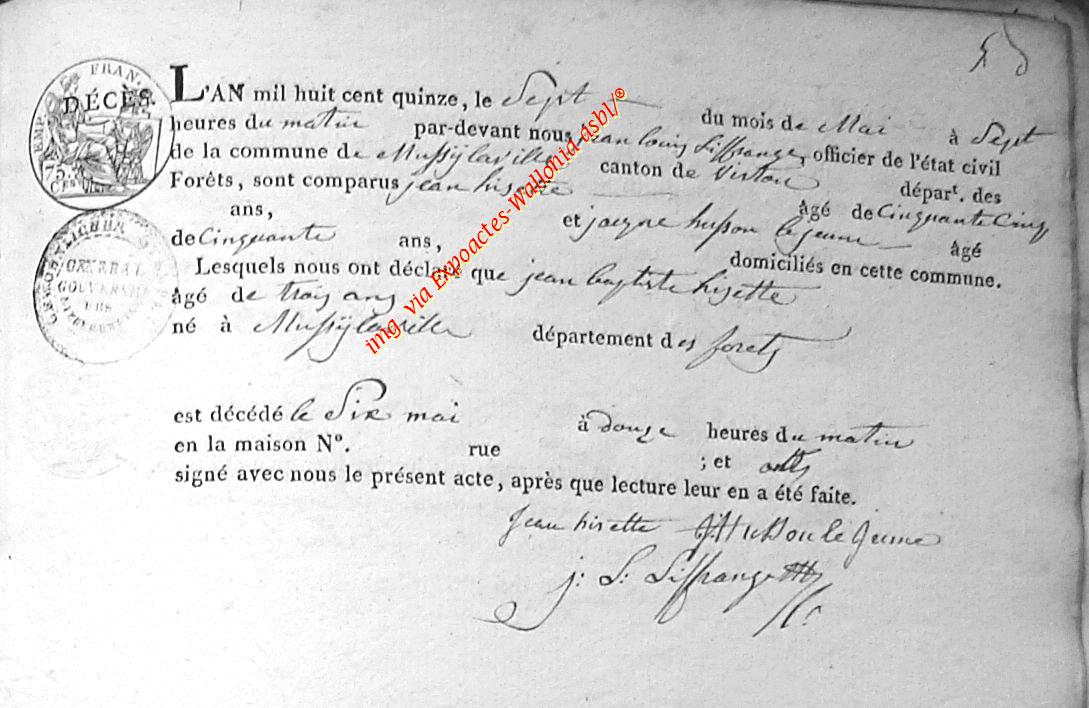 DÉCÈS.
FRAN.
75.
L'AN mil huit cent quinze, le Sept du mois de Mai à Sept
heures du matin par-devant nous jean louis Liffrange, officier de l'état civil
de la commune de Mussÿlaville canton de Virton départ. des
Forêts, sont comparus jean hizette âgé de Cinquante Cinq
ans, et jacque husson le jeune âgé
de Cinquante ans, domiciliés en cette commune.
Lesquels nous ont déclaré que jean baptiste hizette
âgé de trois ans
né à Mussÿlaville département des forets
est décédé le Six mai à douze heures du matin
en la maison N°. rue ; et ont
signé avec nous le présent acte, après que lecture leur en a été faite.
Jean hisette JHusson le Jeune
j: L: Liffrange
GENERAL
GOUVERNEM
img. via Expoactes-Wallonia asbl/®